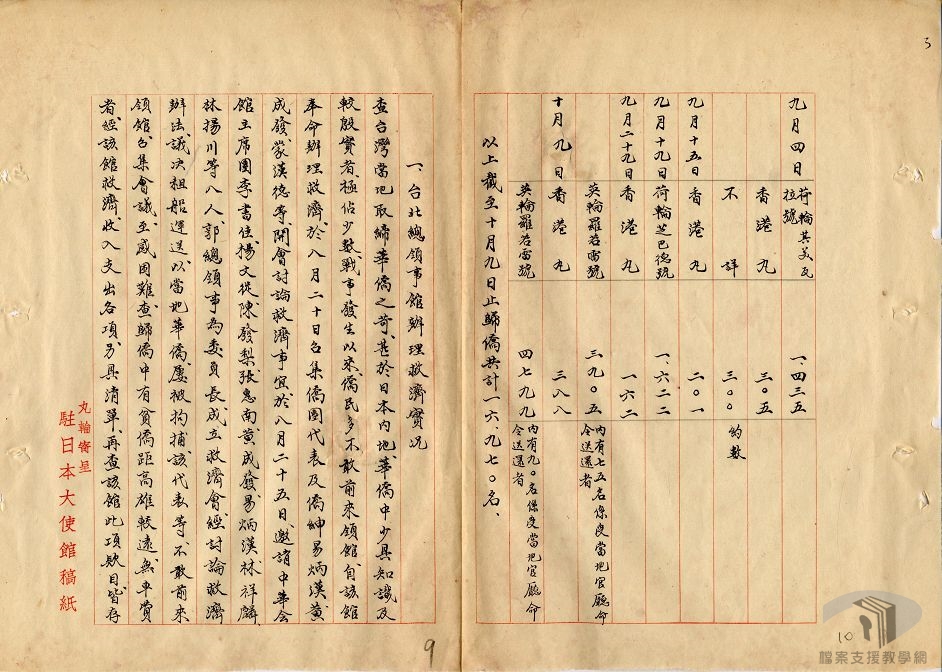 3
九月四日 荷輪其美瓦拉號 一.四三五
香港丸 三〇五
不詳 三〇〇 約數
九月十五日 香港丸 二〇一
九月十九日 荷輪芝巴德號 一.六二二
九月二十九日 香港丸 一六二
英輪羅若雷號 三.九〇五 內有七五名係受當地官廳命令送還者
十月九日 香港丸 三八八
英輪羅若雷號 四七九九 內有九〇名係受當地官廳命令送還者
以上截至十月九日止歸僑共計一六.九七〇名、
10
一、台北總領事館辦理救濟實況
查台灣當地取締華僑之苛、甚於日本內地、華僑中少具知識及
較殷實者、極佔少數、戰事發生以來、僑民多不敢前來領館、自該館
奉命辦理救濟、於八月二十日召集僑團代表及僑紳易炳漢黃
成發蒙漢德等、開會討論救濟事宜、於八月二十五日、邀請中華會
館主席團李書佳楊文從陳發梨張惠南黃成發易炳漢林祥麟
林揚川等八人、郭總領事為委員長、成立救濟會、經討論救濟
辦法、議決租船運送、以當地華僑、屢被拘捕、該代表等不敢前來
領館、召集會議、至感困難、查歸僑中有貧僑距高雄較遠、無車貲
者、經該館救濟、收入支出各項、另具清單、再查該館此項欵目、皆存
丸輪寄呈
駐日本大使館稿紙
9
檔案支援教學網